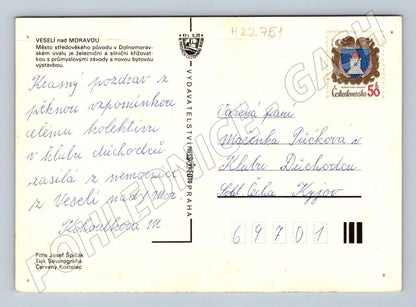 VESELÍ nad MORAVOU
Město středověkého původu v Dolnomorav-
ském úvalu je železniční a silniční křižovat-
kou s průmyslovými závody a novou bytovou
výstavbou.
Krásný pozdrav z
pěknou vzpomínkou
celému kolektivu
v klubu důchodců
zasílá z nemocnice
z Veselí nad Mor.
M
Foto Josef Špičák
Tisk Severografia
Červený Kostelec
VYDAVATELSTVÍ PRAHA
H 22.751
Československo 50
Vážená paní
Mařenka
Klubu Důchodcou
Kyjov
69701
POHLEDNICE - GACH